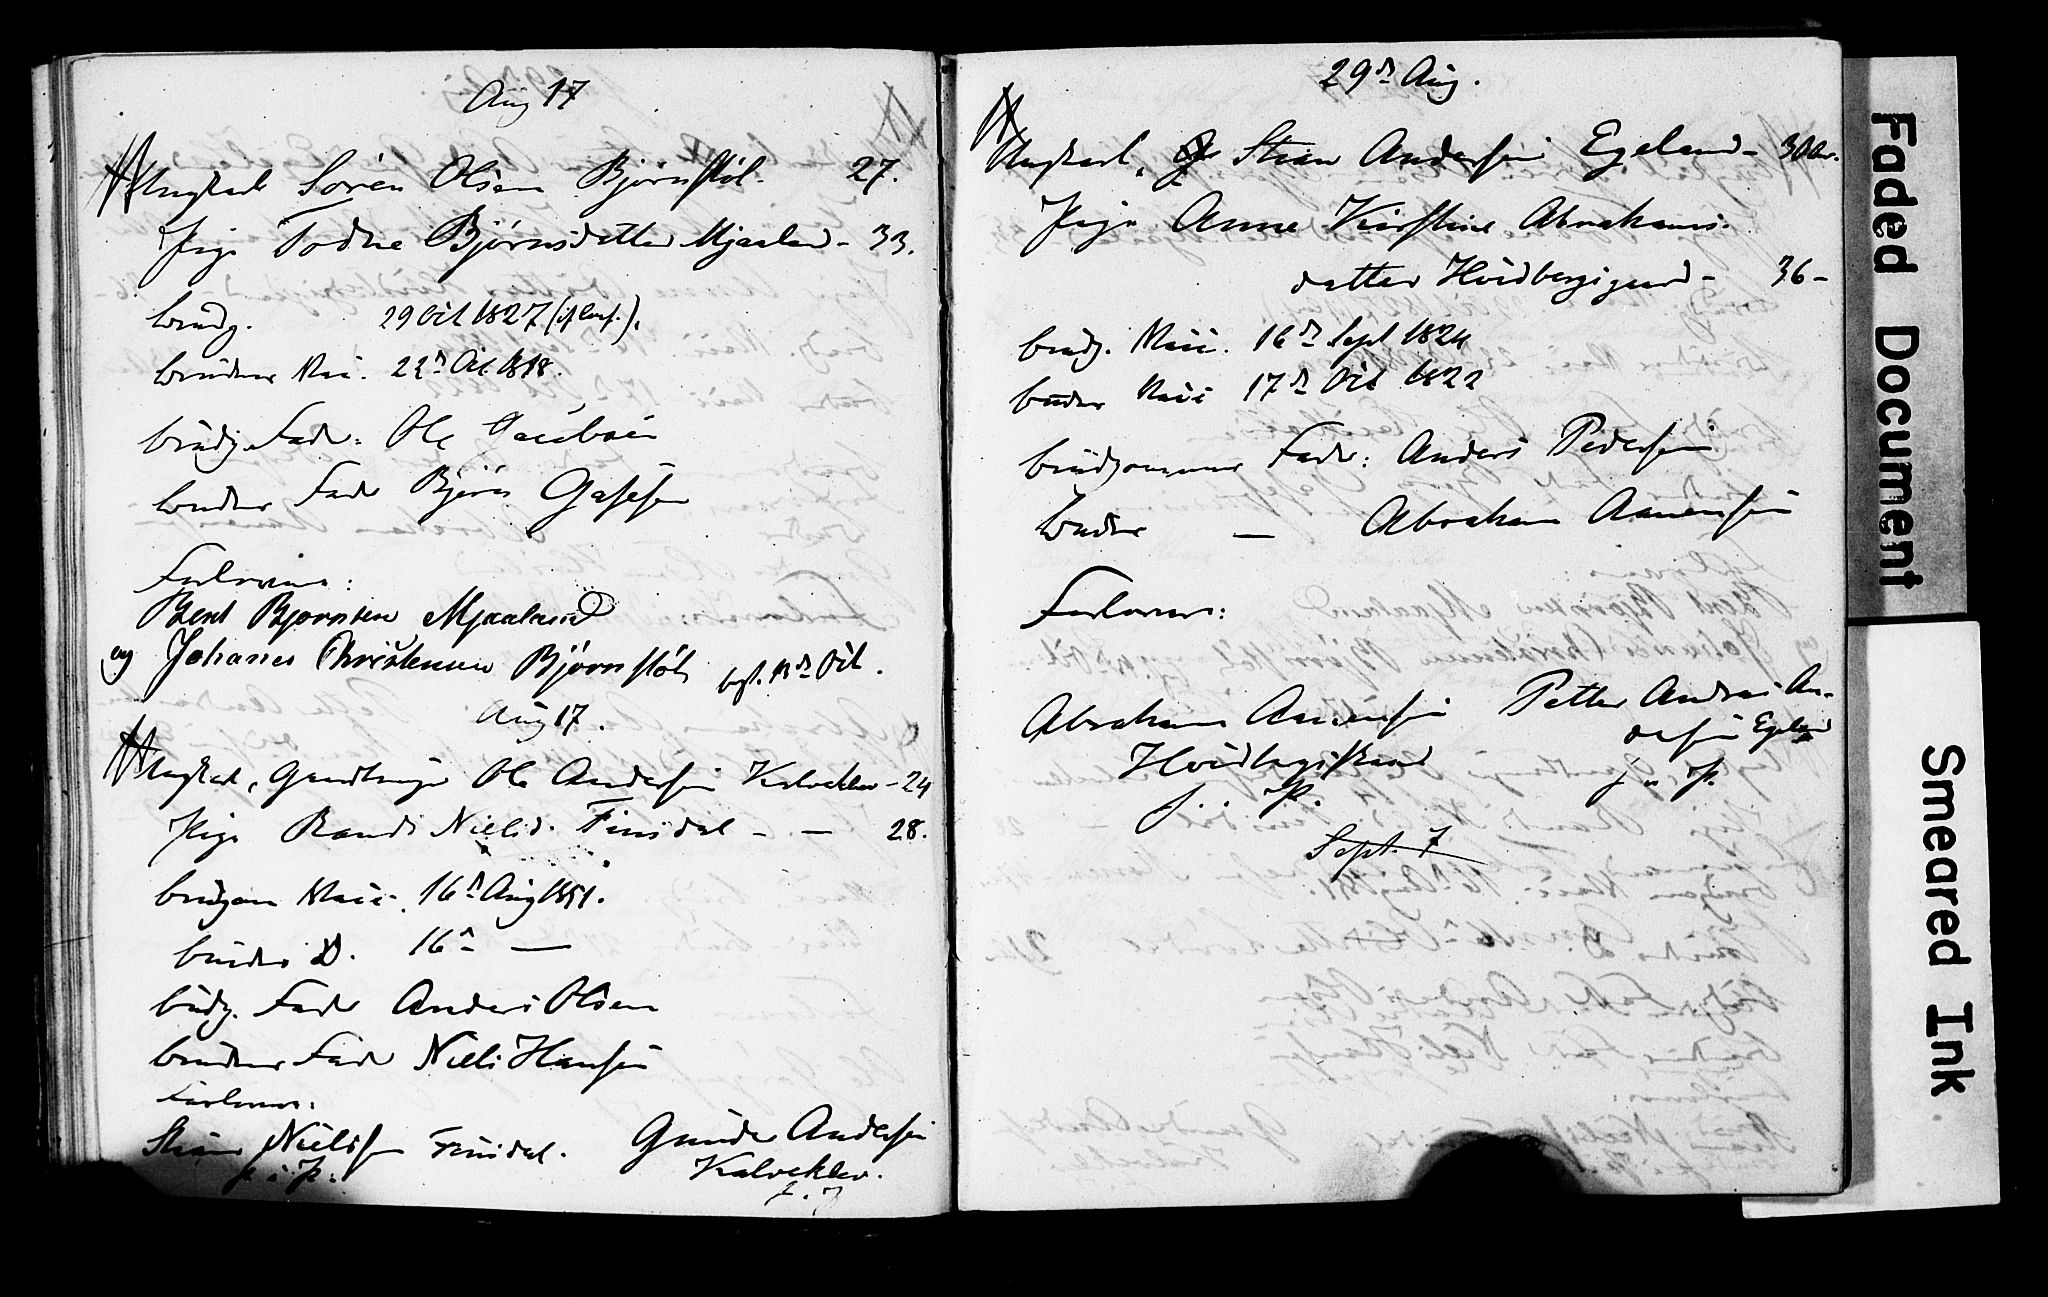 Aug 17
Ungkarl Søren Olsen Bjørnstöl. 27.
Pige Todne Bjørnsdatter Mjaaland - 33.
brudg. 29 Oct 1827
brudens Vacc. 22d Oct 1818.
brudg. Fader: Ole Jacobsen
brudens Fader Bjørn Gasesen
Forlovere:
Bent Bjørnsen Mjaaland
og Johanes Christensen Bjørnstöl Oct.
Aug 17.
Ungkarl, Ole Andersen Kalvehlev - 24
Pige Randi Nielsd. Finsdal - — 28.
brudgom Vacc. 16d Aug 1851.
brudens D. 16d —
brudg. Fader Anders Olsen
brudens Fader Niels Hansen
Forlovere:
Stian Nielsen Finsdal. Gunder Andersen
Kalvehlev.
29d Aug.
Ungkarl, Stian Andersen Egeland - 30
Pige Anne Kirstine Abrahams-
datter Hvidbergsgaard - 36 -
brudg. Vacc. 16d Sept 1824
brudens Vacc 17d Oct 1822
brudgommens Fader: Anders Pedersen
brudens — Abraham Aanensen
Forlovere:
Abraham Aanensen Petter Andreas An-
dersen Egeland
m. p. P.
Sept. 7
Faded Document
Smeared Ink